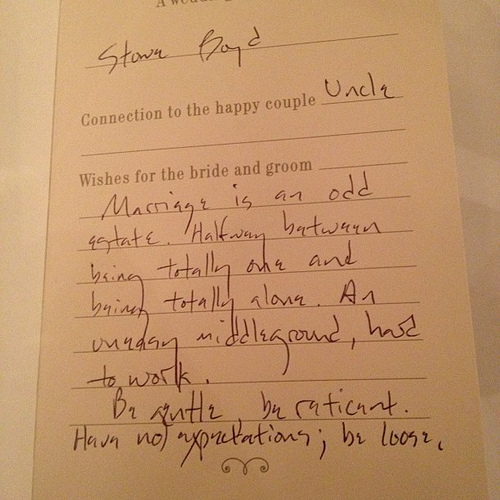 A wedding
Stowe Boyd
Connection to the happy couple Uncle
Wishes for the bride and groom
Marriage is an odd
estate. Halfway between
being totally one and
being totally alone. An
uneasy middleground, hard
to work.
Be gentle, be reticent.
Have not expectations; be loose.